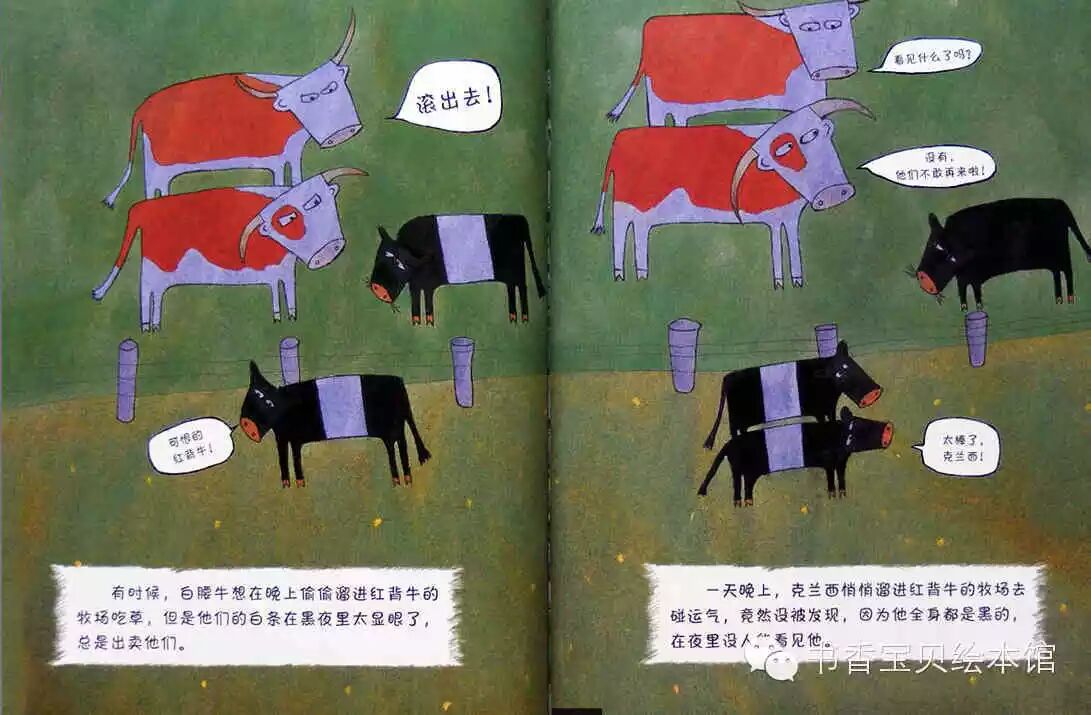 滚出去！
可恨的
红背牛！
有时候，白腰牛想在晚上偷偷溜进红背牛的
牧场吃草，但是他们的白条在黑夜里太显眼了，
总是出卖他们。
看见什么了吗？
没有，
他们不敢再来啦！
太棒了，
克兰西！
一天晚上，克兰西悄悄溜进红背牛的牧场去
碰运气，竟然没被发现，因为他全身都是黑的，
在夜里没人能看见他。
书香宝贝绘本馆